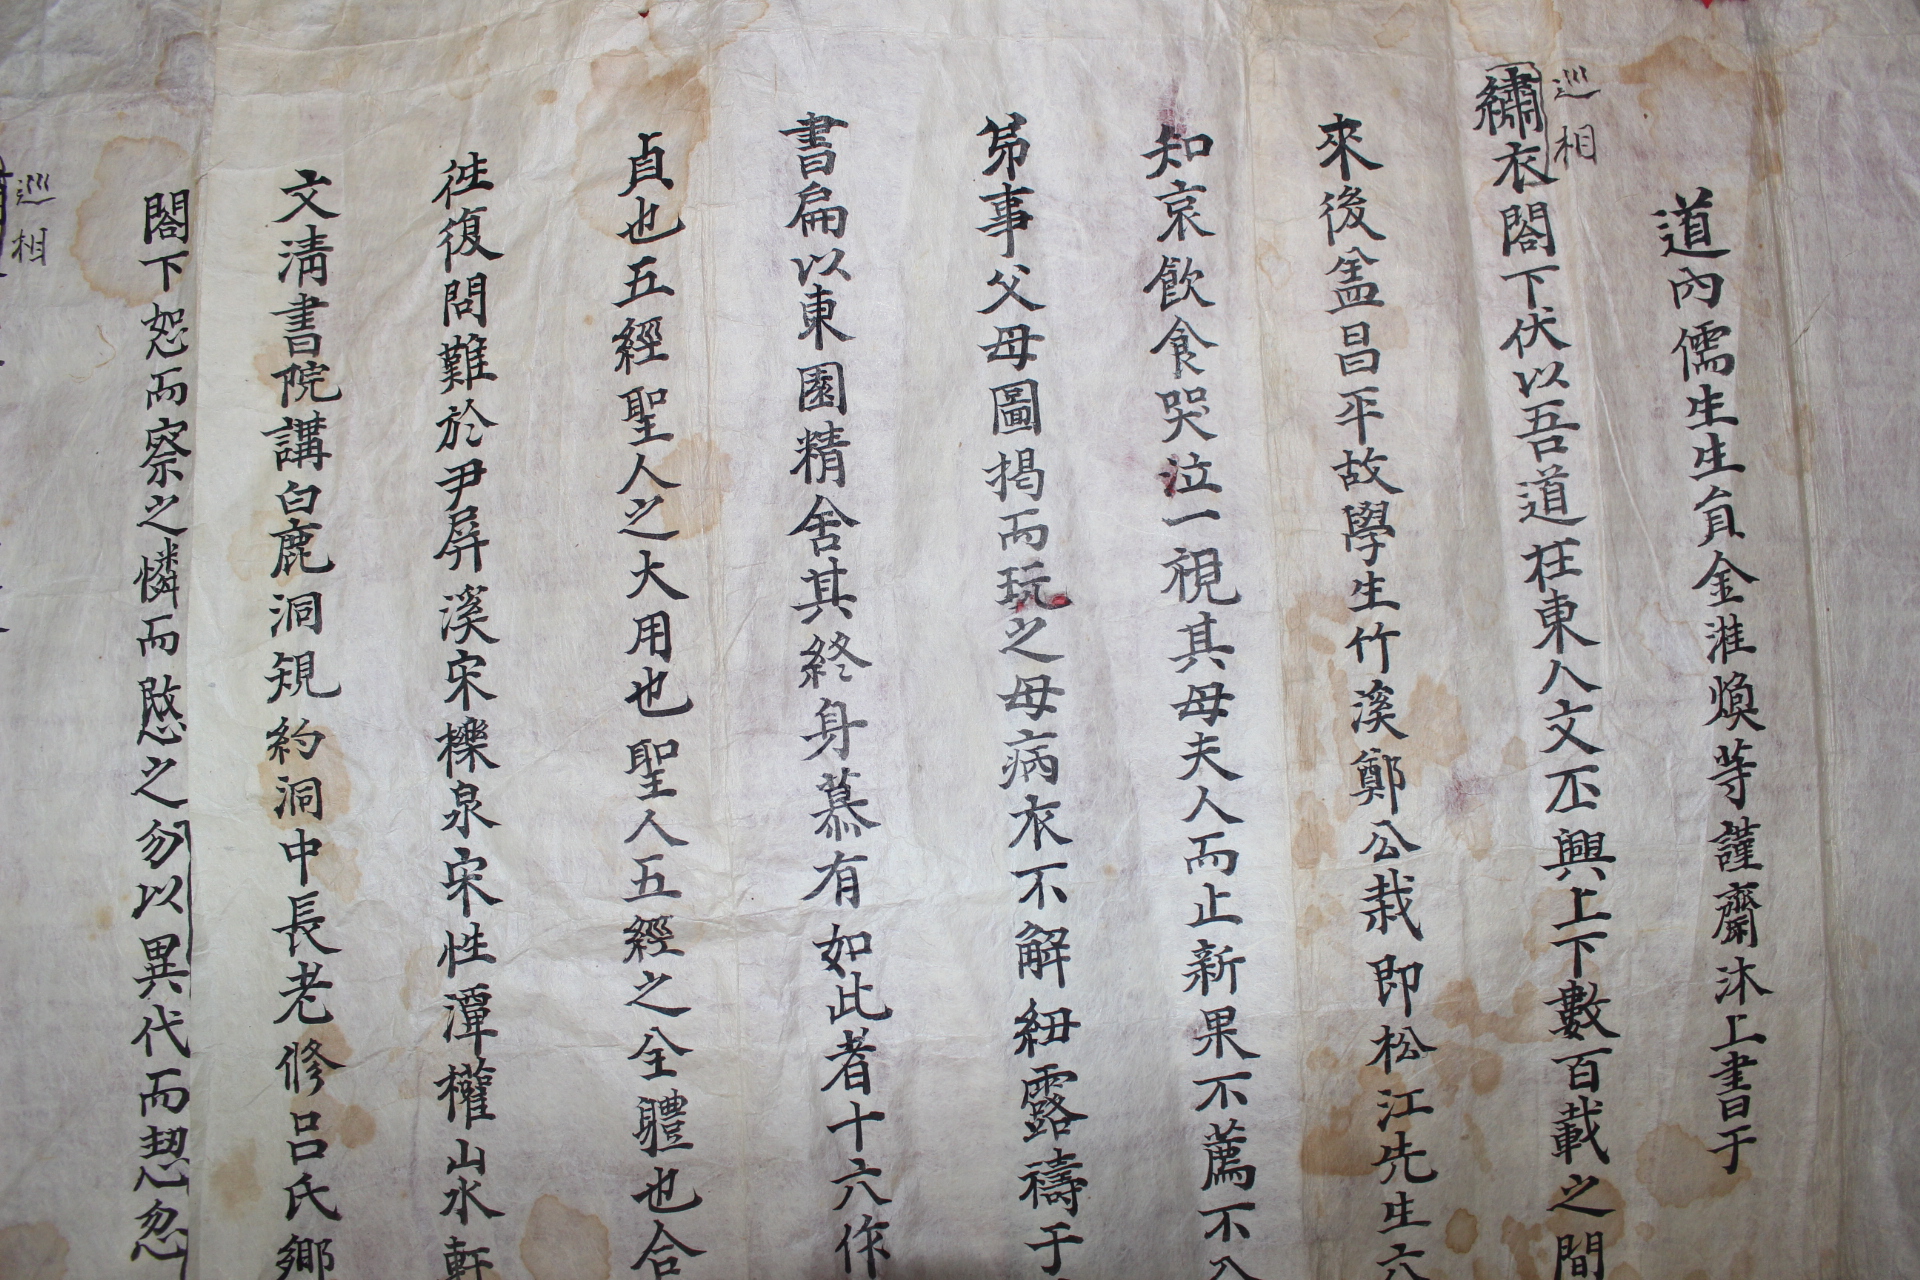 道內儒生生員金淮煥等謹齋沐上書于
巡相
繡衣閤下伏以吾道在東人文丕興上下數百載之間
來後昌平故學生竹溪鄭公栽即松江先生六
知哀飮食哭泣一視其母夫人而止新果不薦不入
弟事父母圖揭而玩之母病衣不解紐露禱于
書扁以東園精舍其終身慕有如此者十六作
貞也五經聖人之大用也聖人五經之全體也合
徃復問難於尹屛溪宋櫟泉宋性潭權山水軒
文淸書院講白鹿洞規約洞中長老修呂氏鄕
閤下恕而察之憐而愍之勿以異代而恝忽
巡相